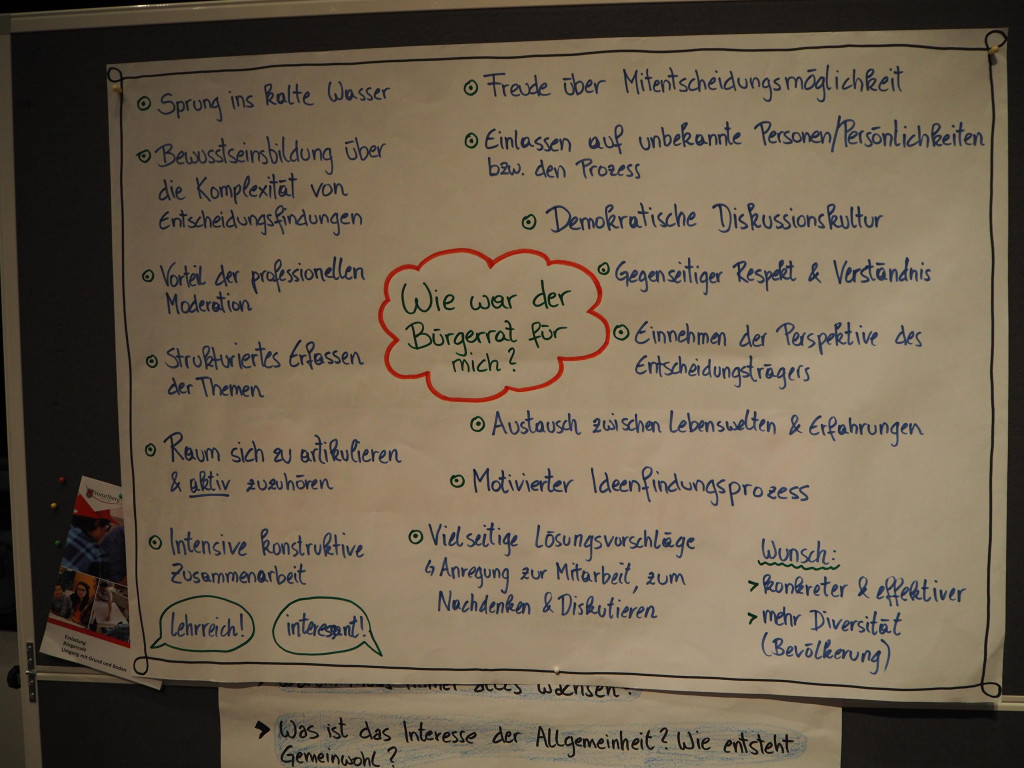 Sprung ins kalte Wasser
Bewusstseinsbildung über
die Komplexität von
Entscheidungsfindungen
Vorteil der professionellen
Moderation
Strukturiertes Erfassen
der Themen
Raum sich zu artikulieren
& aktiv zuzuhören
Intensive konstruktive
Zusammenarbeit
Lehrreich!
interessant!
Wie war der
Bürgerrat für
mich?
Freude über Mitentscheidungsmöglichkeit
Einlassen auf unbekannte Personen/Persönlichkeiten
bzw. den Prozess
Demokratische Diskussionskultur
Gegenseitiger Respekt & Verständnis
Einnehmen der Perspektive des
Entscheidungsträgers
Austausch zwischen Lebenswelten & Erfahrungen
Motivierter Ideenfindungsprozess
Vielseitige Lösungsvorschläge
↳ Anregung zur Mitarbeit, zum
Nachdenken & Diskutieren
Wunsch:
> konkreter & effektiver
> mehr Diversität
(Bevölkerung)
Einladung
Bürgerrat
Umgang mit Grund und Boden
immer alles wachsen?
> Was ist das Interesse der Allgemeinheit? Wie entsteht
Gemeinwohl?